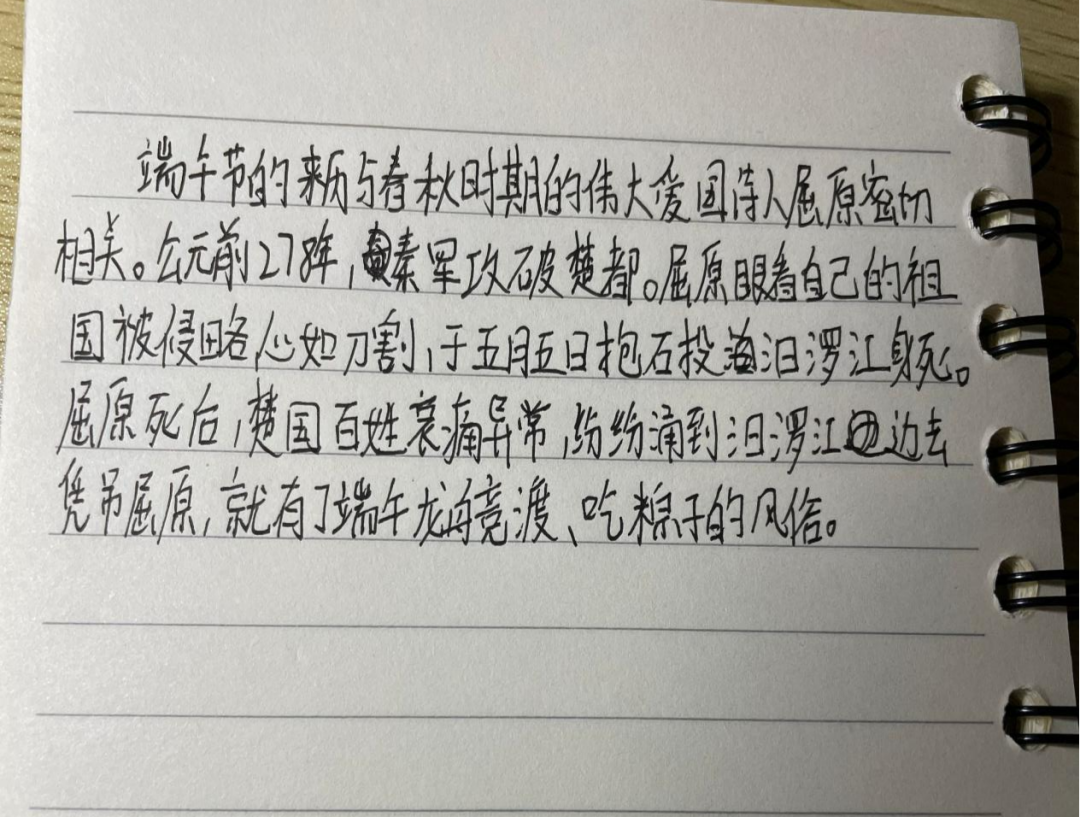 端午节的来历与春秋时期的伟大爱国诗人屈原密切
相关。公元前278年,秦军攻破楚都。屈原眼看自己的祖
国被侵略,心如刀割,于五月五日抱石投汨罗江身死。
屈原死后,楚国百姓哀痛异常,纷纷涌到汨罗江边去
凭吊屈原,就有了端午龙舟竞渡、吃粽子的风俗。